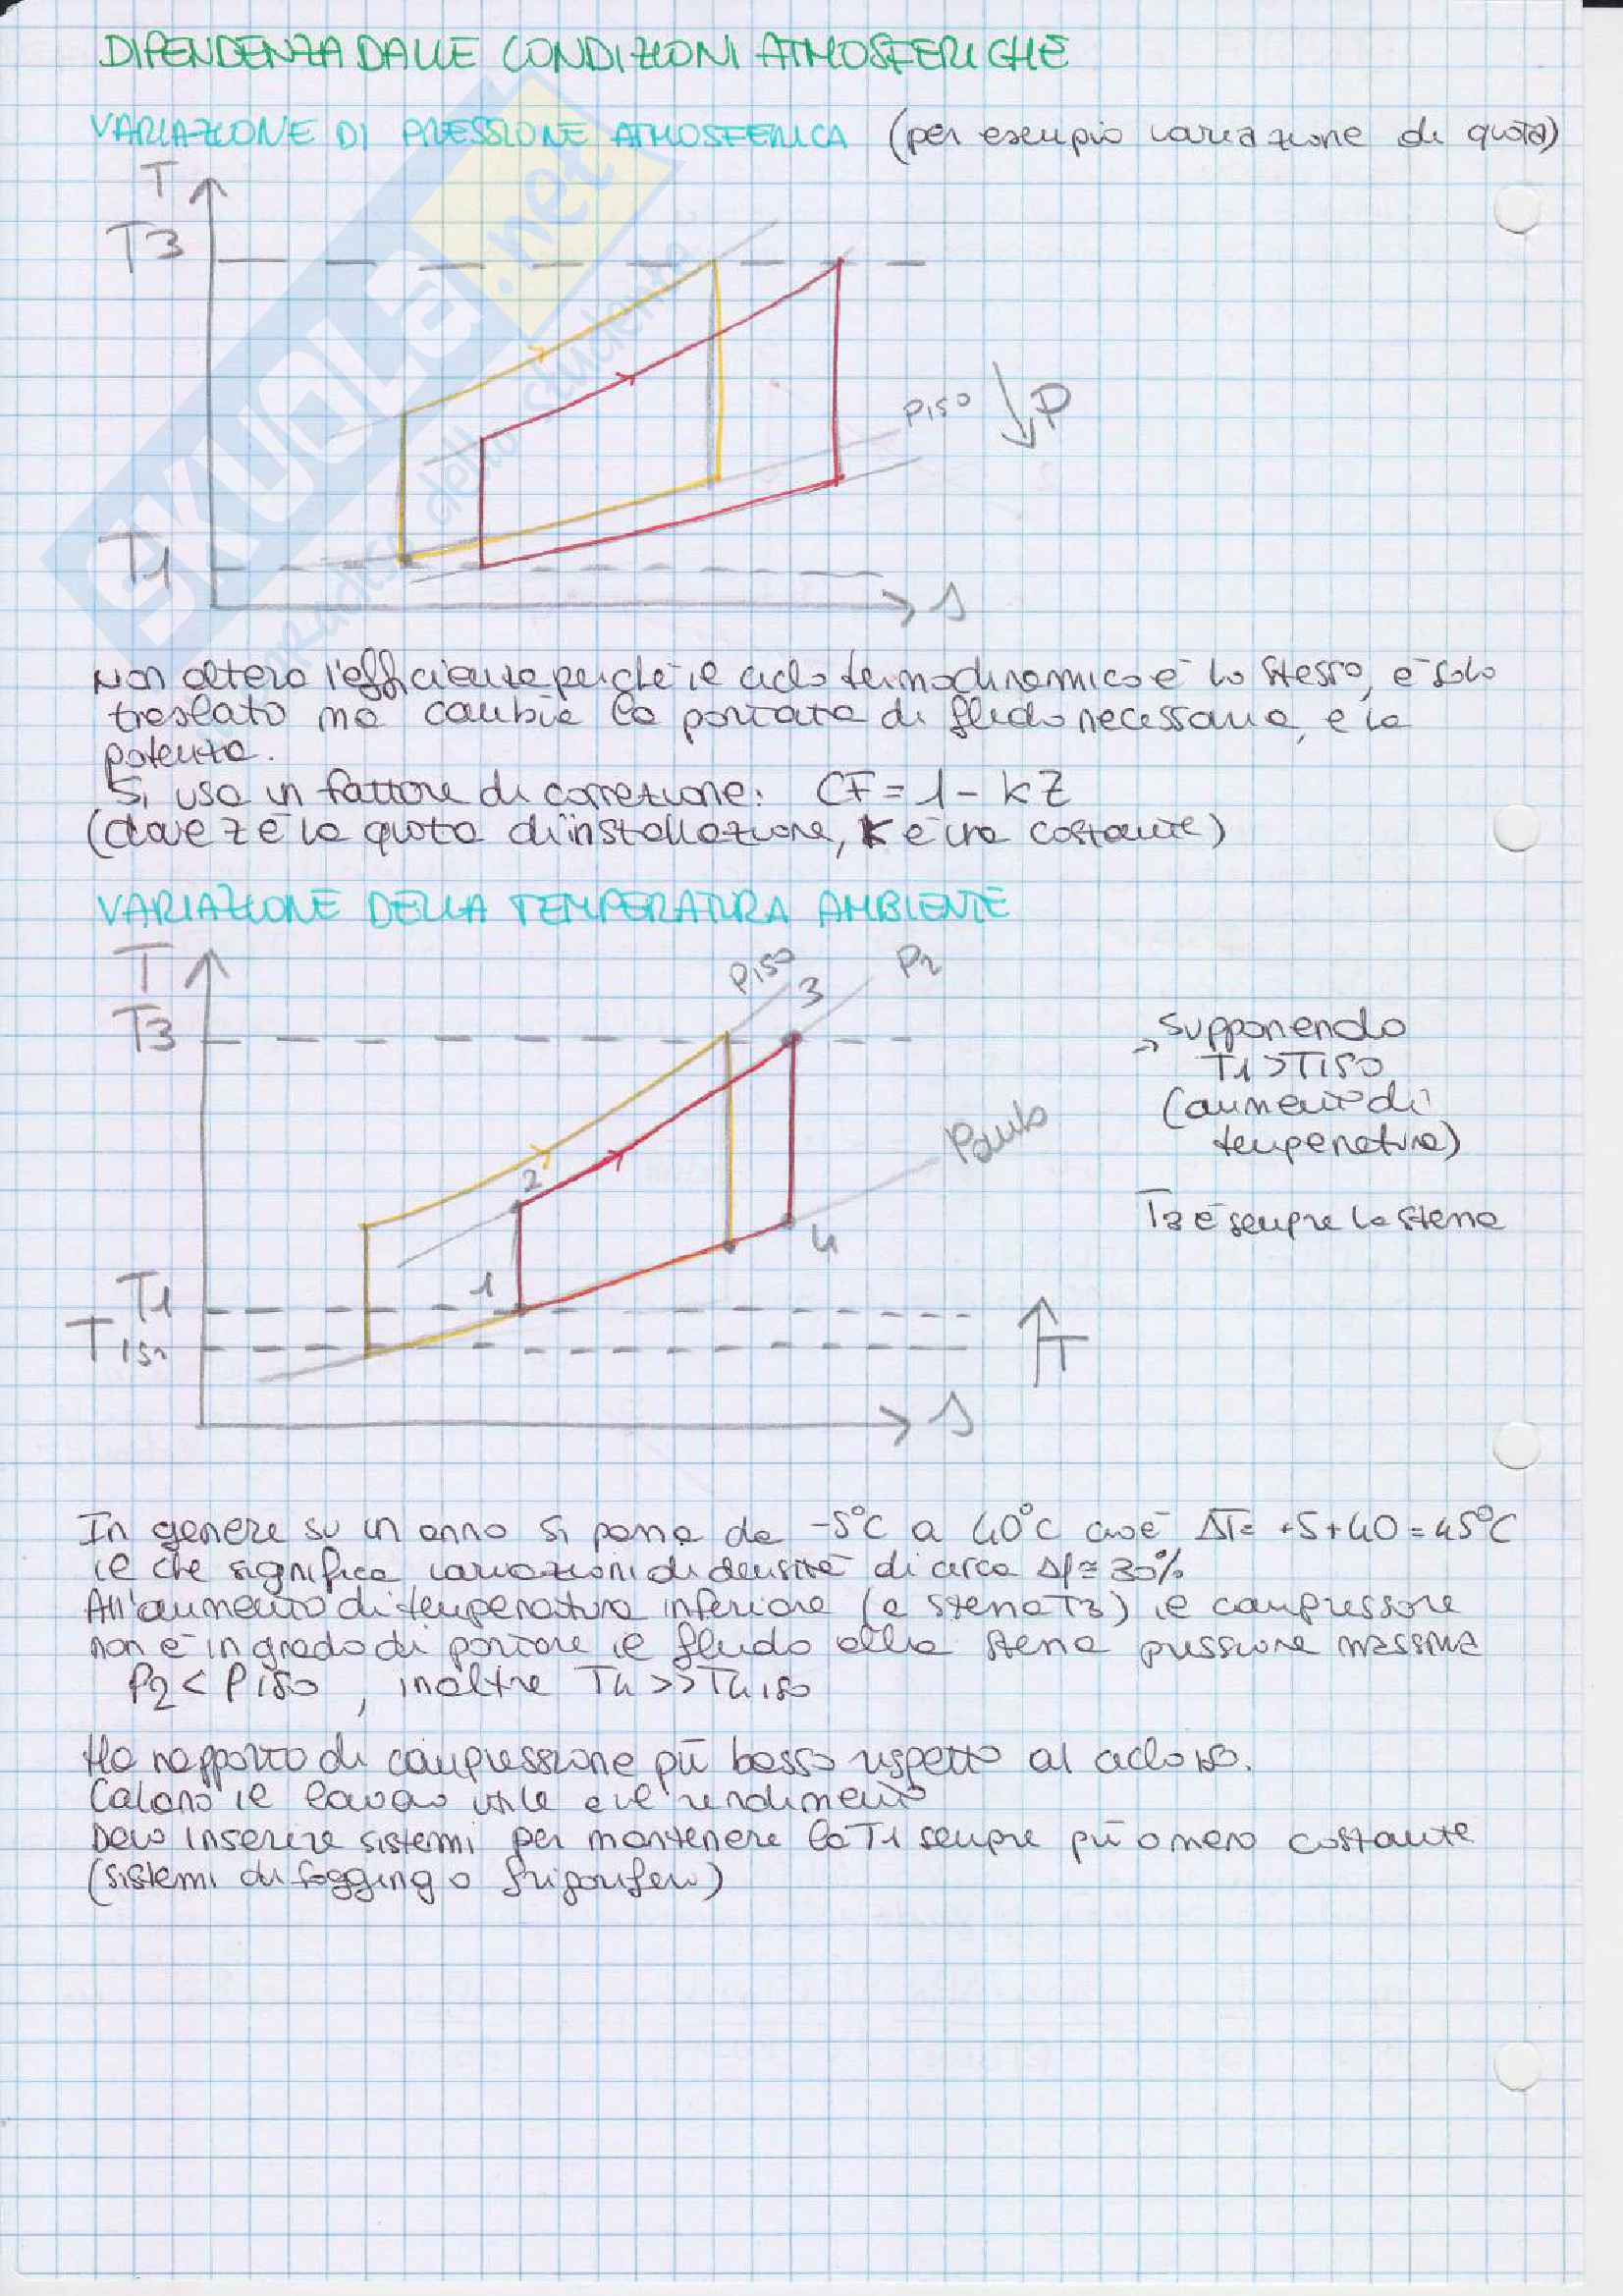 DIPENDENZA DALLE CONDIZIONI ATMOSFERICHE
VARIAZIONE DI PRESSIONE ATMOSFERICA (per esempio variazione di quota)
T
T3
PISO
P
T1
s
SKUOLA.net
Non altero l'efficienza perché il ciclo termodinamico è lo stesso, è solo
traslato ma cambia la portata di fluido necessaria, e la
potenza.
Si usa un fattore di correzione: CF = 1 - kZ
(dove Z è la quota di installazione, K è una costante)
VARIAZIONE DELLA TEMPERATURA AMBIENTE
T
PISO
P2
3
T3
→ supponendo
T1 > TISO
(aumento di
temperatura)
Pamb
2
T3 è sempre la stessa
4
1
T1
TISO
T
s
In genere su un anno si passa da -5°C a 40°C cioè ΔT= +5+40 = 45°C
il che significa variazioni di densità di circa Δρ ≅ 30%
All'aumento di temperatura inferiore (a stessa T3) il compressore
non è in grado di portare il fluido alla stessa pressione massima
P2 < PISO , inoltre T4 >> T4 ISO
Ho rapporto di compressione più basso rispetto al ciclo ISO.
Calano il lavoro utile e il rendimento
Devo inserire sistemi per mantenere la T1 sempre più o meno costante
(sistemi di fogging o frigoriferi)